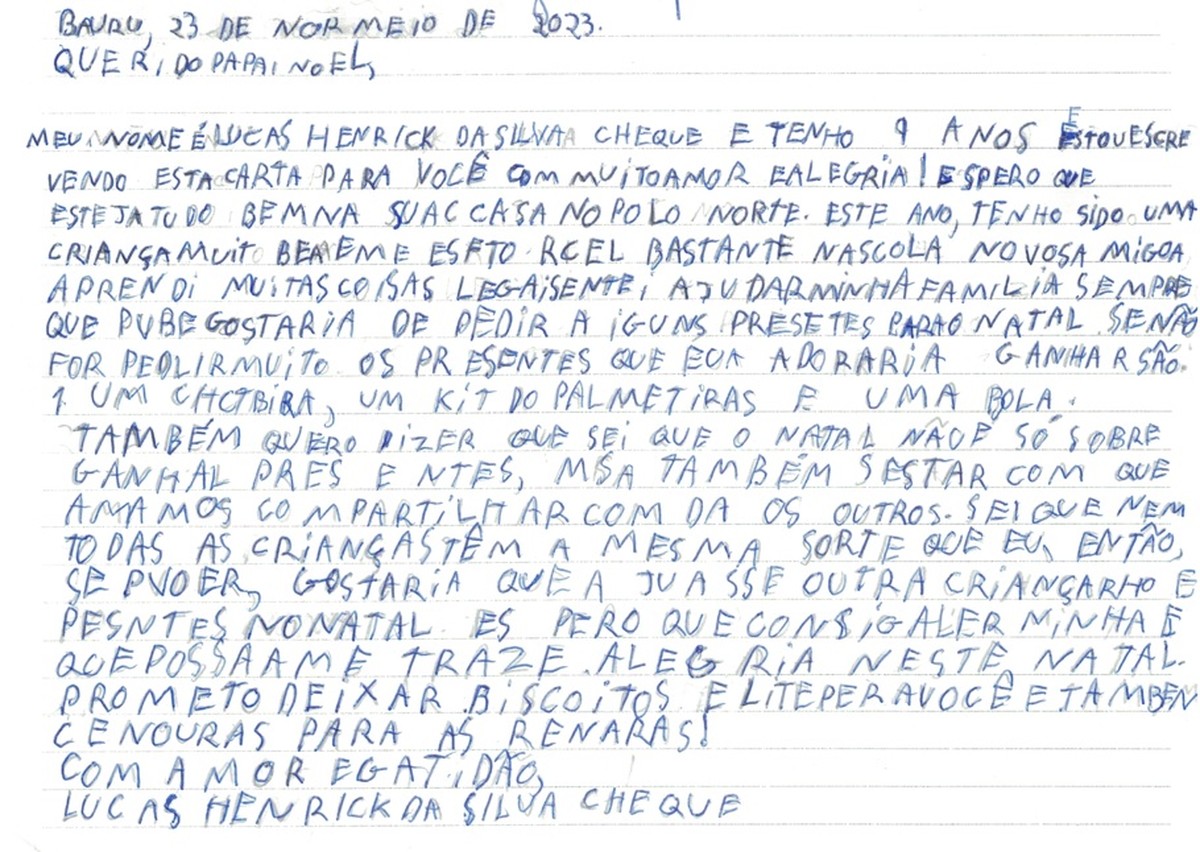 BAURU, 23 DE NORMEIO DE 2023.
QUERIDO PAPAI NOEL,
MEU NOME É LUCAS HENRICK DA SILVA CHEQUE E TENHO 9 ANOS ESTOU ESCRE
VENDO ESTA CARTA PARA VOCÊ COM MUITO AMOR E ALEGRIA! ESPERO QUE
ESTEJA TUDO BEM NA SUAC CASA NO POLO NORTE. ESTE ANO, TENHO SIDO UMA
CRIANÇA MUITO BEMEME ESETO RCEL BASTANTE NASCOLA NOVOSA MIGOA
APRENDI MUITAS COISAS LEGAISENTE, AJUDAR MINHA FAMILIA SEMPRE
QUE PUBE GOSTARIA DE PEDIR A IGUNS PRESETES PARAO NATAL. SENÃO
FOR PEDLIR MUITO. OS PRESENTES QUE EUA ADORARIA GANHAR SÃO:
1. UM CHOTBIRA, UM KIT DO PALMETIRAS E UMA BOLA.
TAMBÉM QUERO DIZER QUE SEI QUE O NATAL NÃOE SÓ SOBRE
GANHAL PRESENTES, MSA TAMBÉM SESTAR COM QUE
AMAMOS COMPARTILHAR COM DA OS OUTROS. SEI QUE NEM
TODAS AS CRIANÇAS TÊM A MESMA SORTE QUE EU, ENTÃO,
SE PUOER, GOSTARIA QUE A JUASSE OUTRA CRIANÇARHO E
PESNTES NO NATAL. ESPERO QUE CONSIGA LER MINHA E
QUE POSSAA ME TRAZE ALEGRIA NESTE NATAL.
PROMETO DEIXAR BISCOITOS E LITE PERA VOCÊ E TAMBEN
CENOURAS PARA AS RENARAS!
COM AMOR E GATIDÃO,
LUCAS HENRICK DA SILVA CHEQUE